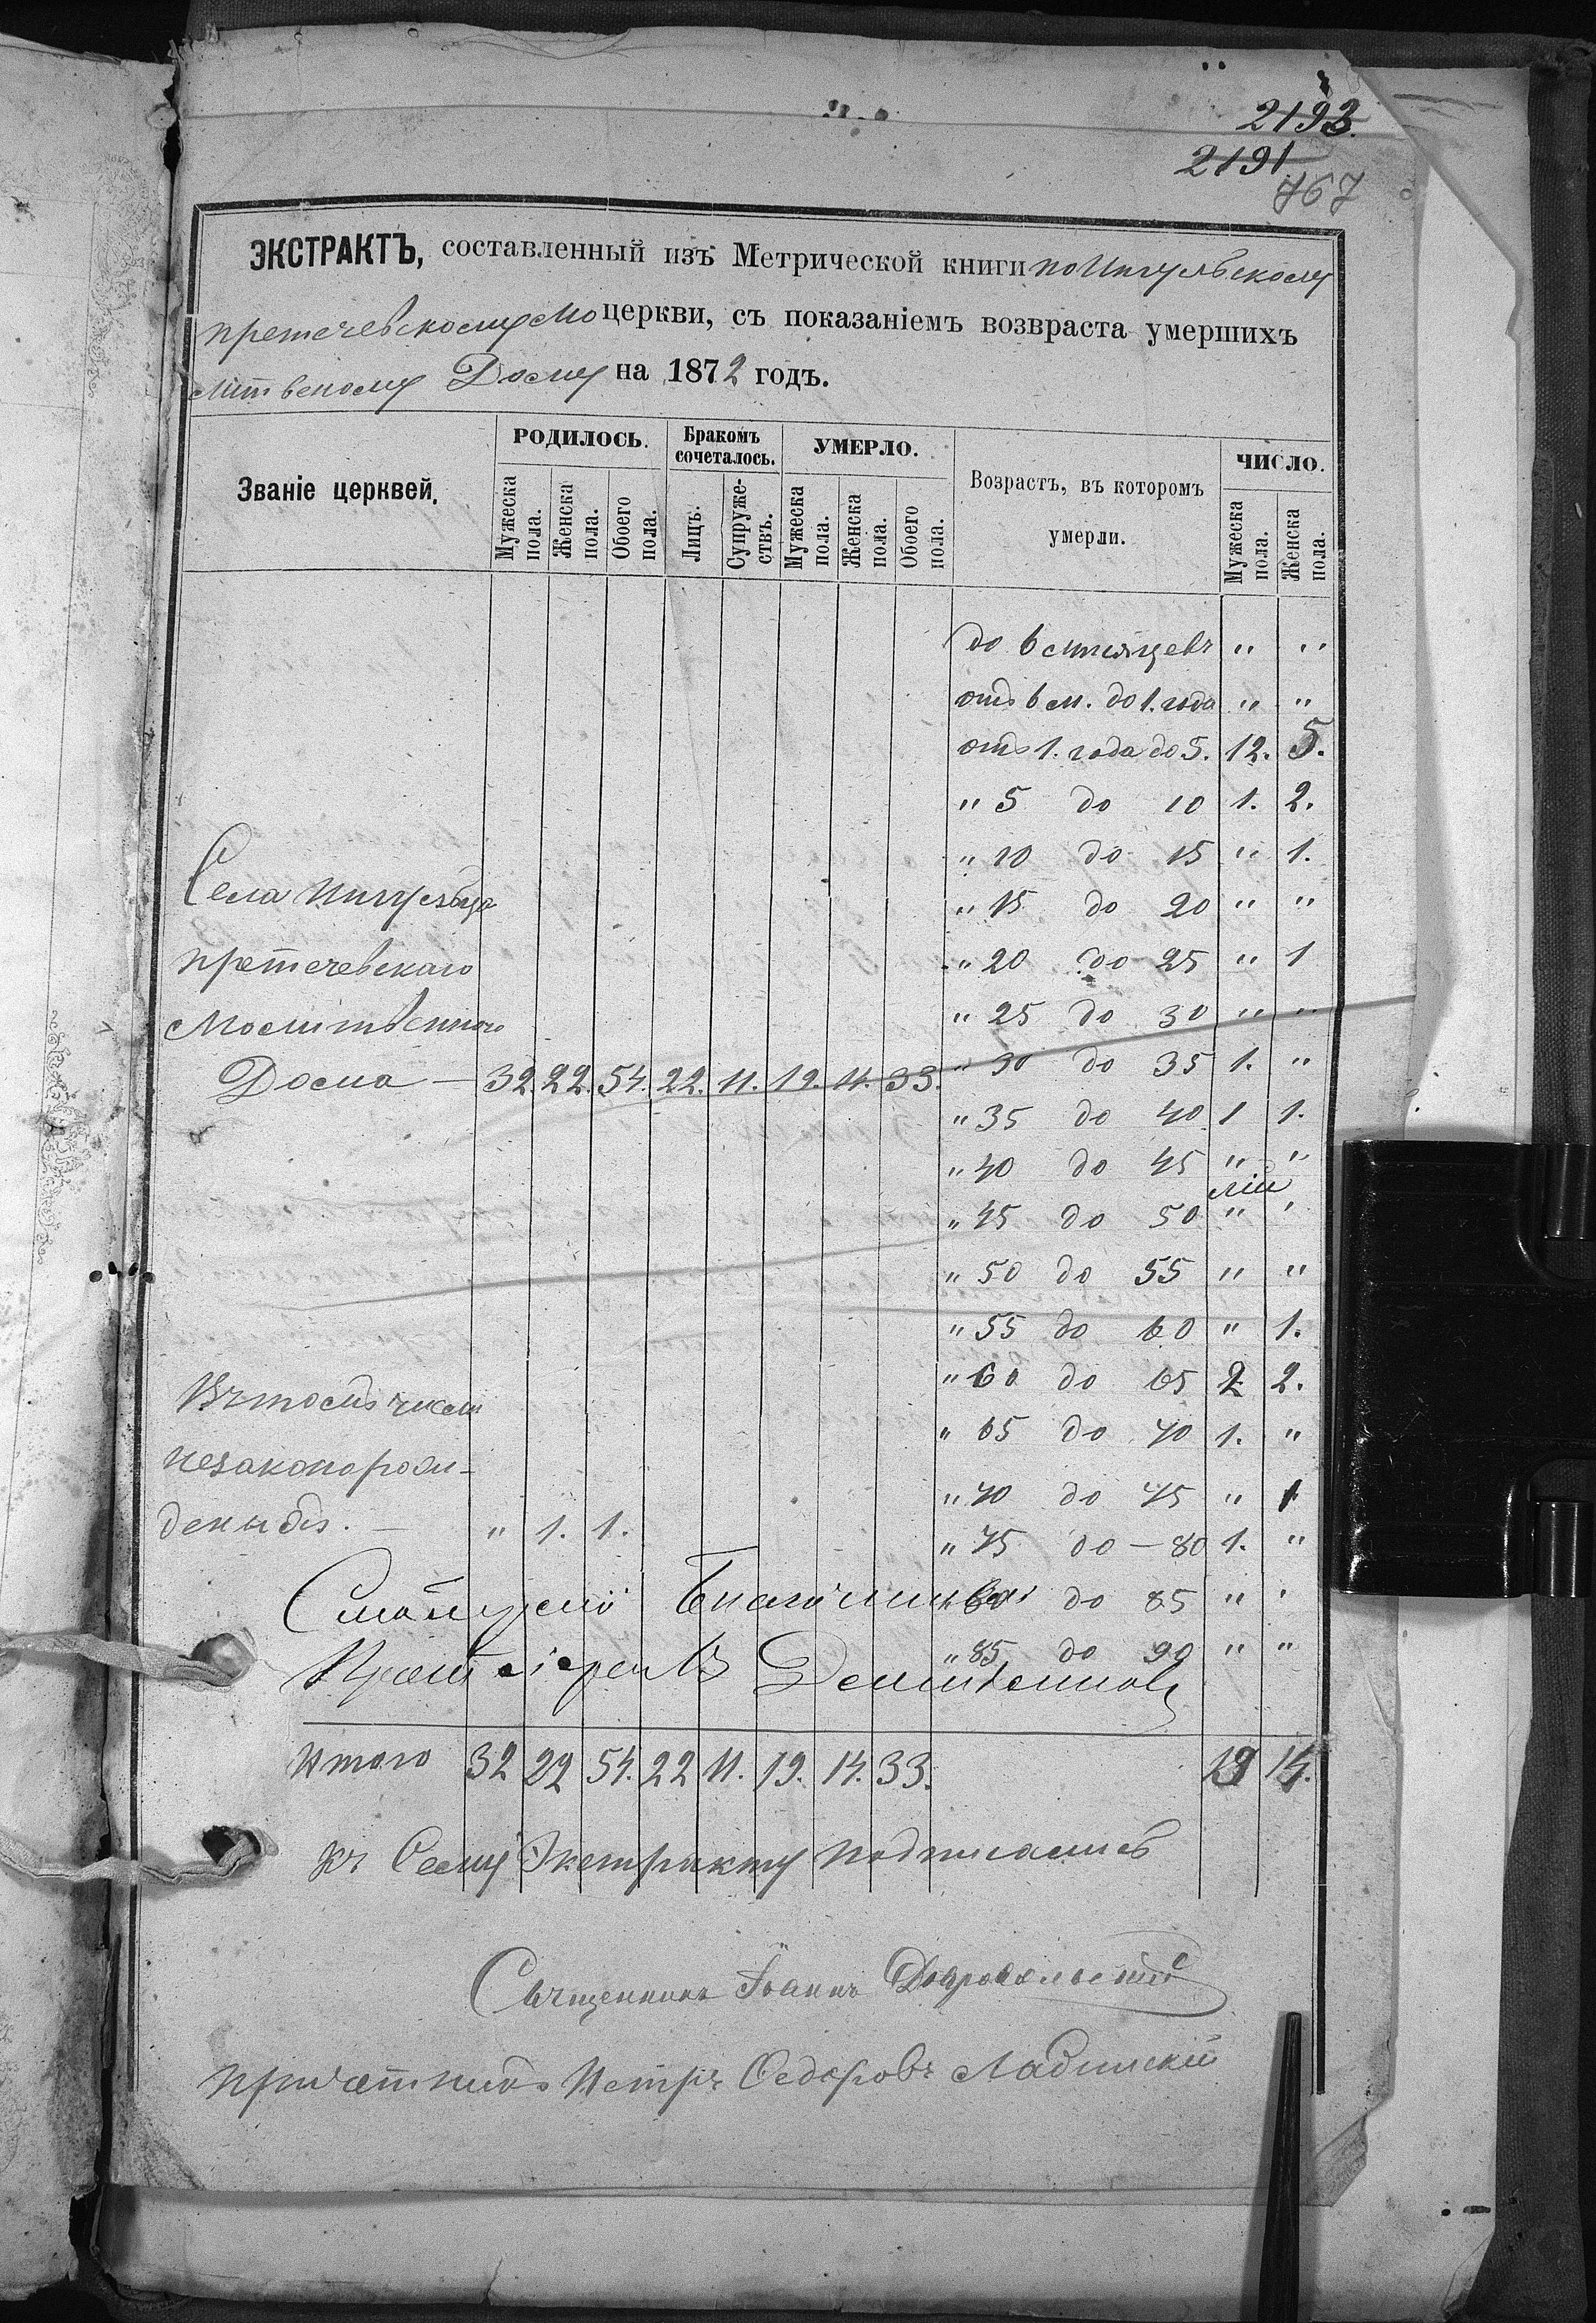 2193.
2191
767
ЭКСТРАКТЪ, составленный изъ Метрической книги по Ингульскому
претечевскому мо церкви, съ показаніемъ возвраста умершихъ
литвеному Дому на 1872 годъ.
Званіе церквей.
РОДИЛОСЬ.
Бракомъ сочеталось.
УМЕРЛО.
Возрастъ, въ которомъ умерли.
ЧИСЛО.
Мужеска пола.
Женска пола.
Обоего пола.
Лицъ.
Супружествъ.
Мужеска пола.
Женска пола.
Обоего пола.
Мужеска пола.
Женска пола.
до 6 мѣсяцевъ " "
отъ 6 м. до 1. года " "
отъ 1. года до 5. 12. 5.
" 5 до 10 1. 2.
" 10 до 15 " 1.
Села
" 15 до 20 " "
претечевскаго
" 20 до 25 " 1
Молитвеннаго
" 25 до 30 " "
Дома — 32. 22. 54. 22. 11. 19. 14. 33.
" 30 до 35 1. "
" 35 до 40 1 1.
" 40 до 45 " "
" 45 до 50 " "
" 50 до 55 " "
" 55 до 60 " 1.
" 60 до 65 2 2.
Въ томъ числѣ
" 65 до 70 1. "
незаконорож-
" 70 до 75 " 1
денныхъ. — " 1. 1.
" 75 до — 80 1. "
Благочинный
" 80 до 85 " "
" 85 до 90 " "
Протоіерей В
Итого 32 22 54. 22 11. 19. 14. 33. 19 14.
Къ Сему Экстракту подписались
Священникъ Іоаннъ Добровольскій
причетникъ Петръ Федоровъ Ладинскій